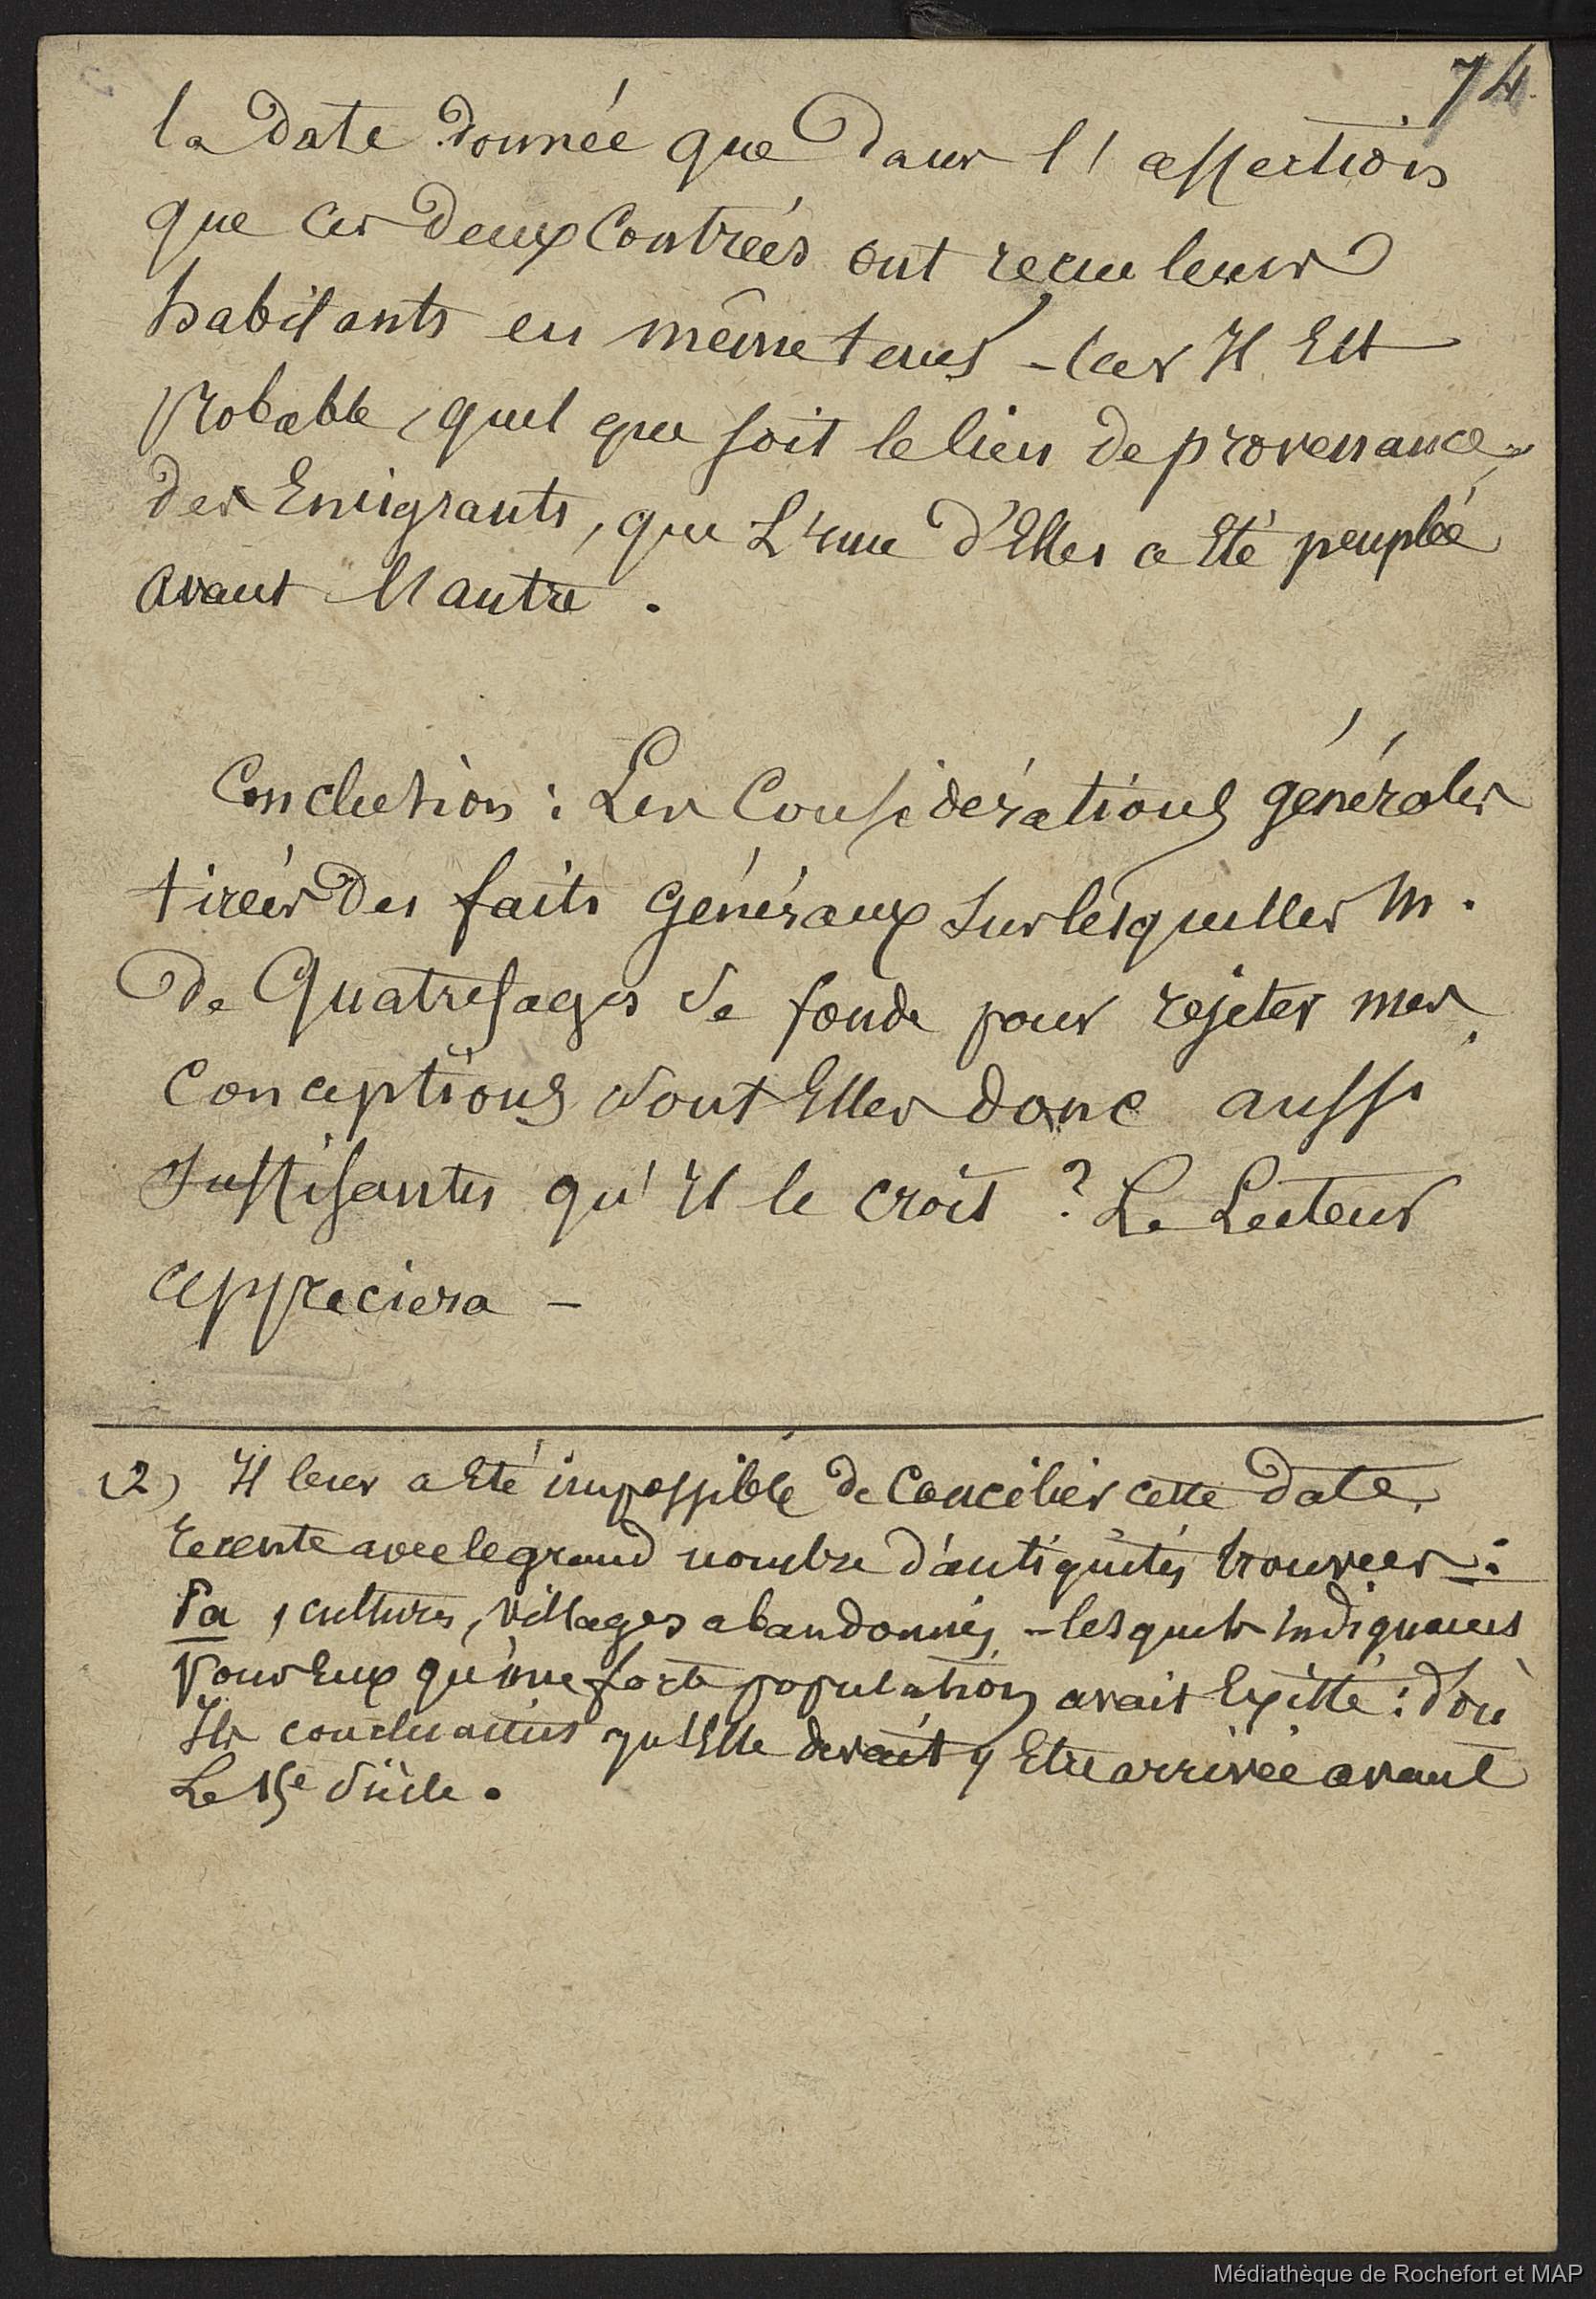 74
la date donnée que dans l'assertion
que ces deux contrées ont reçue leurs
habitants en même tems – car Il Est
probable, quel que soit le lieu de provenance
des Emigrants, que L'une d'Elles a Eté peuplée
avant l'autre.
Conclusion : Les Considérations générales
tirées des faits généraux sur lesquelles M.
de Quatrefages se fonde pour rejeter mes
conceptions sont Elles donc aussi
suffisantes qu'Il le croit ? Le Lecteur
appreciera –
(2) Il leur a Eté impossible de Concilier cette date
recente avec le grand nombre d'antiquités trouvées :
Pa, cultures, villages abandonnés – lesquels indiquaient
pour Eux qu'une forte population avait Existé : d'où
Ils concluaient qu'Elle devait y Etre arrivée avant
Le 15e siècle.
Médiathèque de Rochefort et MAP